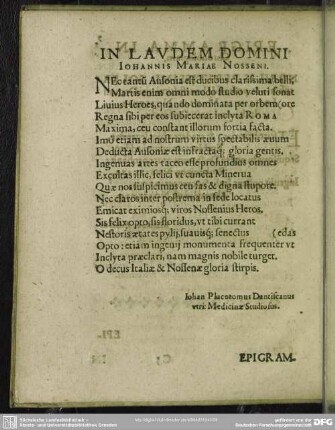 IN LAVDEM DOMINI
IOHANNIS MARIAE NOSSENI.
NEc tantũ Ausonia est ducibus clarissima belli,
Martis enim omni modo studio veluti sonat
Liuius Heroes, quando domînata per orbem (ore
Regna sibi per eos subiecerat inclyta ROMA
Maxima, ceu constant illorum fortia facta.
Imò etiam ad nostrum virtus spectabilis æuum
Deducta Ausoniæ est infractaq; gloria gentis,
Ingenuas artes taceo esse profundius omnes
Excultas illic, felici vt cuncta Minerua
Quæ nos suspicimus ceu fas & digna stupore.
Nec claros inter postrema in sede locatus
Emicat eximiosq; viros Nossenius Heros,
Sis felix opto, sis floridus, vt tibi currant
Nestoris ætates pylij, suauisq; senectus (edas
Opto: etiam ingenij monumenta frequenter vt
Inclyta præclari, nam magnis nobile turget,
O decus Italiæ & Nossenæ gloria stirpis.
Iohan Placotomus Dantiscanus
vtri: Medicinæ Studiosus.
EPIGRAM-